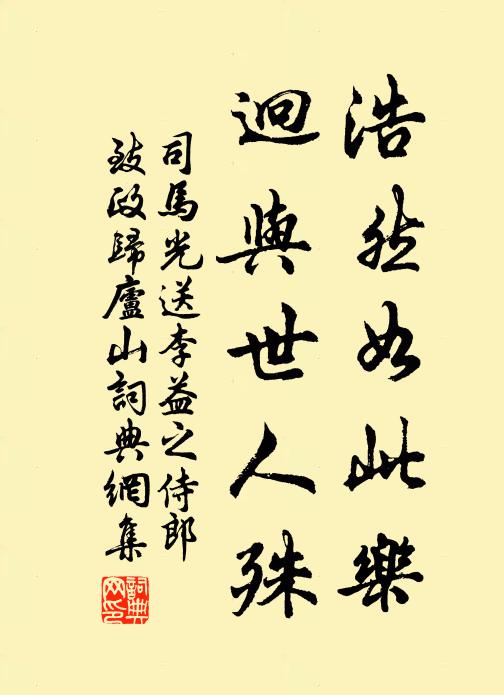 浩然如此樂
迥與世人殊
司馬光送李益之侍郎
致政歸廬山詞典網集
詞典
网